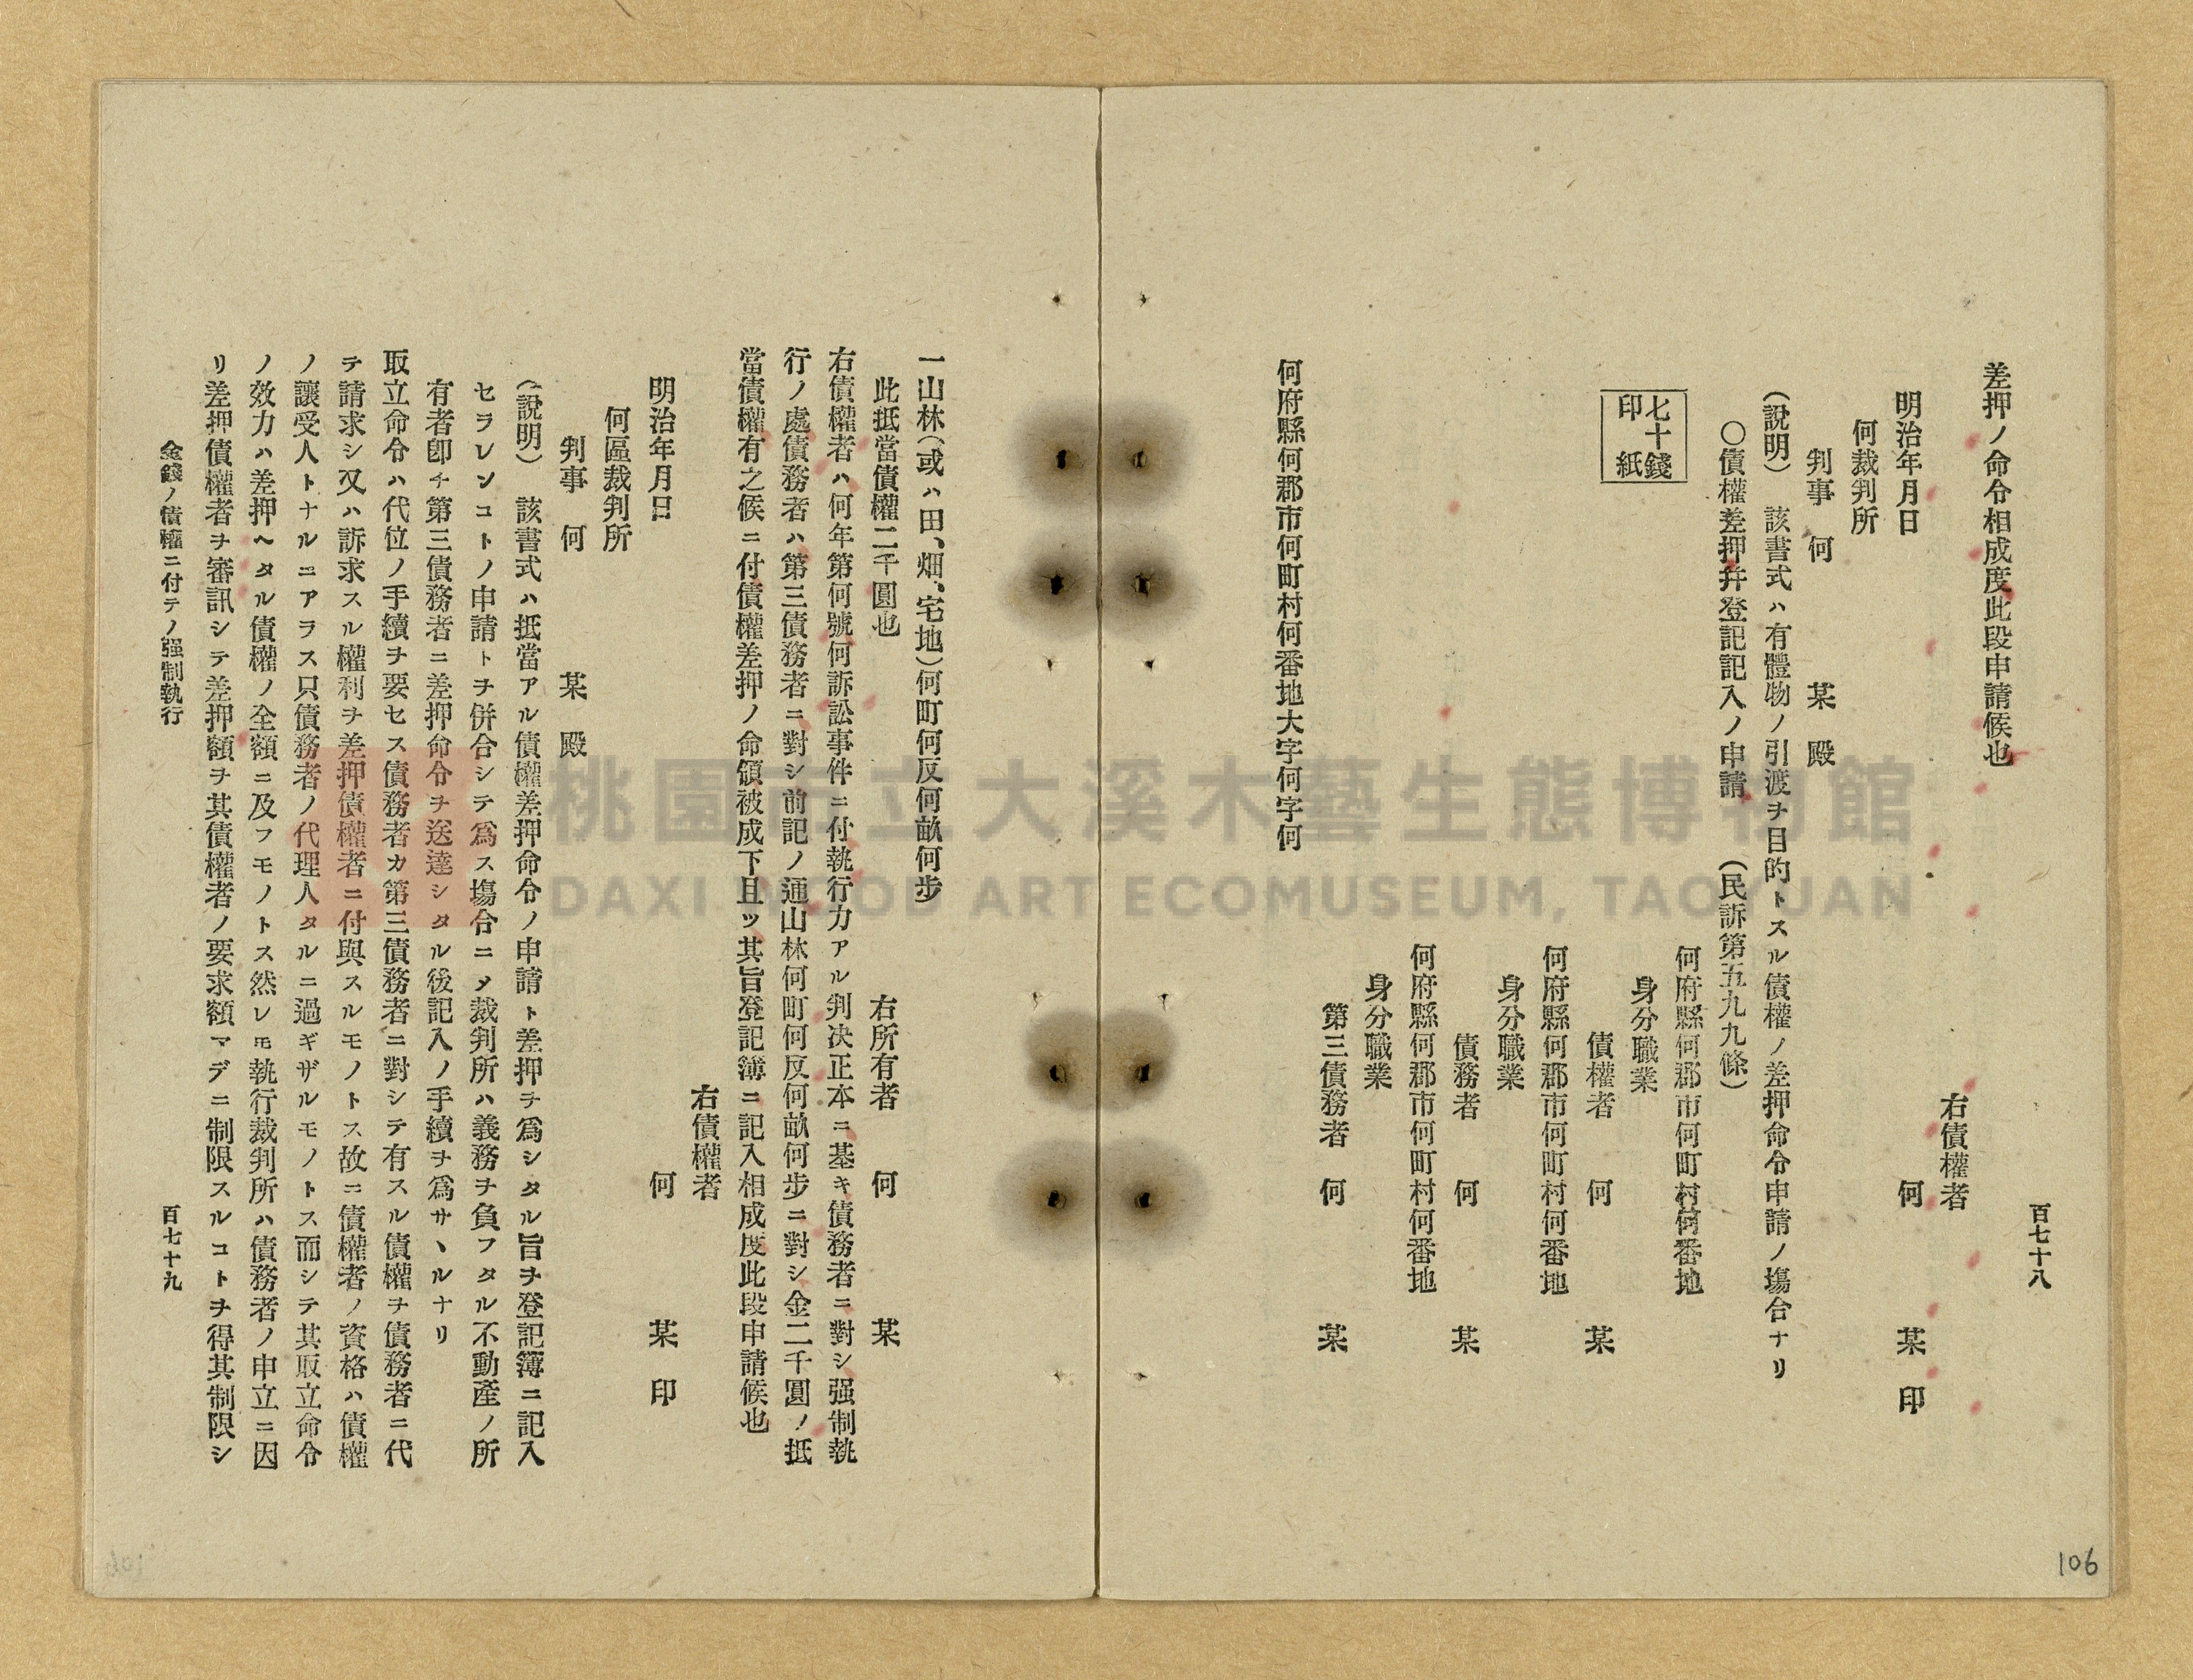 百七十八
差押ノ命令相成度此段申請候也
右債權者
明治年月日
何　某　印
何裁判所
判事　何　某　殿
(説明)　該書式ハ有體物ノ引渡ヲ目的トスル債權ノ差押命令申請ノ塲合ナリ
〇債權差押幷登記記入ノ申請　(民訴第五九九條)
七十錢
印紙
何府縣何郡市何町村何番地
身分職業
債權者　何　某
何府縣何郡市何町村何番地
身分職業
債務者　何　某
何府縣何郡市何町村何番地
身分職業
第三債務者　何　某
何府縣何郡市何町村何番地大字何字何
106
一山林(或ハ田、畑、宅地)何町何反何畝何步
此抵當債權二千圓也
右所有者　何　某
右債權者ハ何年第何號何訴訟事件ニ付執行力アル判决正本ニ基キ債務者ニ對シ强制執
行ノ處債務者ハ第三債務者ニ對シ前記ノ通山林何町何反何畝何步ニ對シ金二千圓ノ抵
當債權有之候ニ付債權差押ノ命領被成下且ッ其旨登記簿ニ記入相成度此段申請候也
右債權者
明治年月日
何　某　印
何區裁判所
判事　何　某　殿
(説明)　該書式ハ抵當アル債權差押命令ノ申請ト差押ヲ爲シタル旨ヲ登記簿ニ記入
セラレンコトノ申請トヲ併合シテ爲ス塲合ニメ裁判所ハ義務ヲ負フタル不動產ノ所
有者卽チ第三債務者ニ差押命令ヲ送達シタル後記入ノ手續ヲ爲サヽルナリ
取立命令ハ代位ノ手續ヲ要セス債務者カ第三債務者ニ對シテ有スル債權ヲ債務者ニ代
テ請求シ又ハ訴求スル權利ヲ差押債權者ニ付與スルモノトス故ニ債權者ノ資格ハ債權
ノ讓受人トナルニアラス只債務者ノ代理人タルニ過ギザルモノトス而シテ其取立命令
ノ效力ハ差押ヘタル債權ノ全額ニ及フモノトス然レモ執行裁判所ハ債務者ノ申立ニ因
リ差押債權者ヲ審訊シテ差押額ヲ其債權者ノ要求額マデニ制限スルコトヲ得其制限シ
金錢ノ債權ニ付テノ强制執行
百七十九
桃園市立大溪木藝生態博物館
DAXI WOOD ART ECOMUSEUM, TAOYUAN